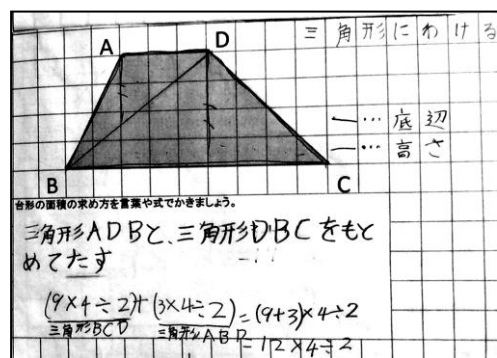 三角形にわける
A
D
一…底辺
一…高さ
B
C
台形の面積の求め方を言葉や式でかきましょう。
三角形ADBと、三角形DBCをもと
めてたす
(9×4÷2)+(3×4÷2)=(9+3)×4÷2
三角形BCD 三角形ABD
=12×4÷2